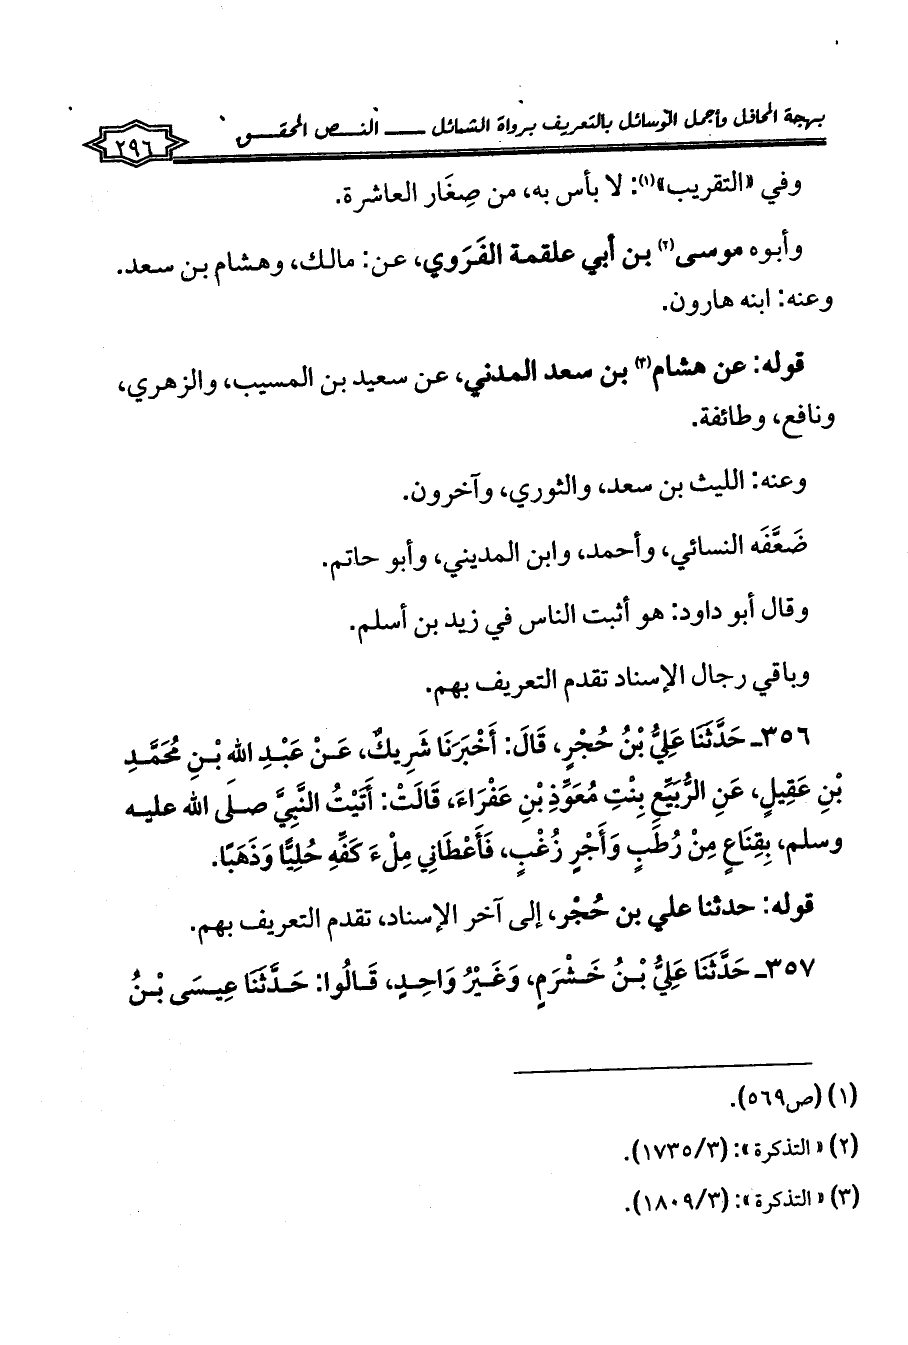 بهجة المحافل وأجمل الوسائل بالتعريف برواة الشمائل ــــ النـــص المحقـــق
٢٩٦
وفي «التقريب»(١): لا بأس به، من صِغَار العاشرة.
وأبوه موسى(٢) بن أبي علقمة الفَرَوي، عن: مالك، وهشام بن سعد.
وعنه: ابنه هارون.
قوله: عن هشام(٣) بن سعد المدني، عن سعيد بن المسيب، والزهري،
ونافع، وطائفة.
وعنه: الليث بن سعد، والثوري، وآخرون.
ضَعَّفَه النسائي، وأحمد، وابن المديني، وأبو حاتم.
وقال أبو داود: هو أثبت الناس في زيد بن أسلم.
وباقي رجال الإسناد تقدم التعريف بهم.
٣٥٦ـ حَدَّثَنَا عَلِيُّ بْنُ حُجْرٍ، قَالَ: أَخْبَرَنَا شَرِيكٌ، عَنْ عَبْدِ الله بْنِ مُحَمَّدِ
بْنِ عَقِيلٍ، عَنِ الرُّبَيِّعِ بِنْتِ مُعَوِّذِ بْنِ عَفْرَاءَ، قَالَتْ: أَتَيْتُ النَّبِيَّ صلى الله عليه
وسلم، بِقِنَاعٍ مِنْ رُطَبٍ وَأَجْرٍ زُغْبٍ، فَأَعْطَانِي مِلْءَ كَفِّهِ حُلِيًّا وَذَهَبًا.
قوله: حدثنا علي بن حُجْر، إلى آخر الإسناد، تقدم التعريف بهم.
٣٥٧ـ حَدَّثَنَا عَلِيُّ بْنُ خَشْرَمٍ، وَغَيْرُ وَاحِدٍ، قَالُوا: حَدَّثَنَا عِيسَى بْنُ
(١) (ص٥٦٩).
(٢) «التذكرة»: (١٧٣٥/٣).
(٣) «التذكرة»: (١٨٠٩/٣).